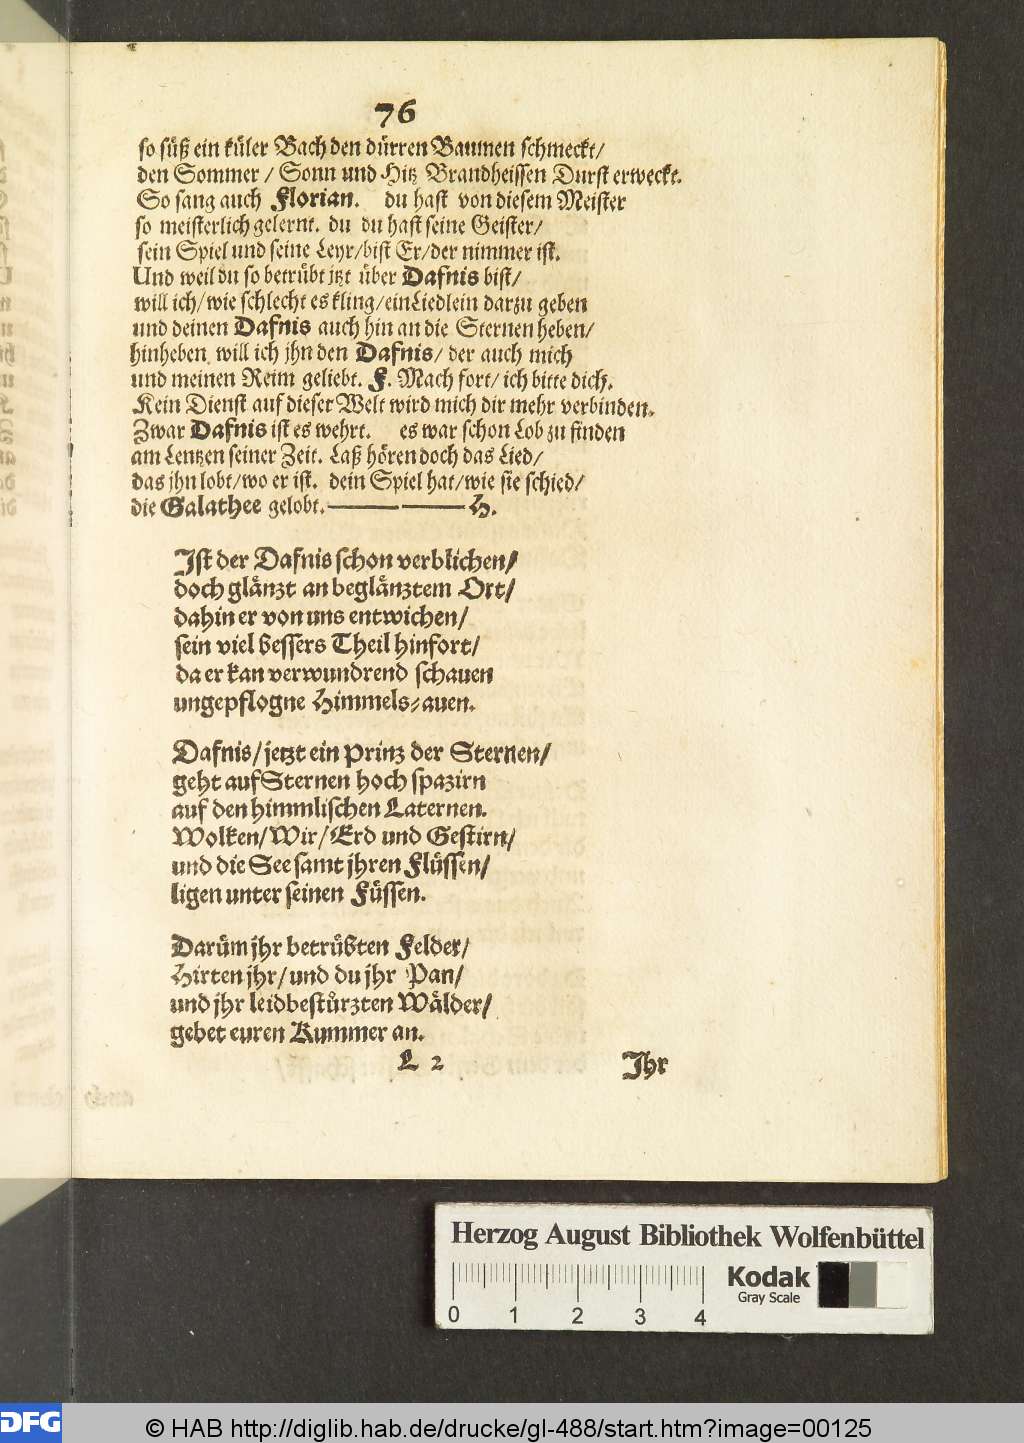 76
so süß ein küler Bach den dürren Baumen schmeckt/
den Sommer / Sonn und Hitz Brandheissen Durst erweckt.
So sang auch Florian. du hast von diesem Meister
so meisterlich gelernt. du du hast seine Geister/
sein Spiel und seine Leyr/bist Er/der nimmer ist.
Und weil du so betrübt jtzt über Dafnis bist/
will ich/wie schlecht es kling/ein Liedlein darzu geben
und deinen Dafnis auch hin an die Sternen heben/
hinheben will ich jhn den Dafnis/ der auch mich
und meinen Reim geliebt. F. Mach fort/ich bitte dich.
Kein Dienst auf dieser Welt wird mich dir mehr verbinden.
Zwar Dafnis ist es wehrt. es war schon Lob zu finden
am Lentzen seiner Zeit. Laß hören doch das Lied/
das jhn lobt/wo er ist. dein Spiel hat/wie sie schied/
die Galathee gelobt. —— —— H.
Ist der Dafnis schon verblichen/
doch glänzt an beglänztem Ort/
dahin er von uns entwichen/
sein viel bessers Theil hinfort/
da er kan verwundrend schauen
ungepflogne Himmels-auen.
Dafnis/jetzt ein Prinz der Sternen/
geht auf Sternen hoch spazirn
auf den himmlischen Laternen.
Wolken/Wir/Erd und Gestirn/
und die See samt jhren Flüssen/
ligen unter seinen Füssen.
Darüm jhr betrübten Felder/
Hirten jhr/und du jhr Pan/
und jhr leidbestürzten Wälder/
gebet euren Kummer an.
L 2 Ihr
Herzog August Bibliothek Wolfenbüttel
Kodak
Gray Scale
0 1 2 3 4
DFG © HAB http://diglib.hab.de/drucke/gl-488/start.htm?image=00125